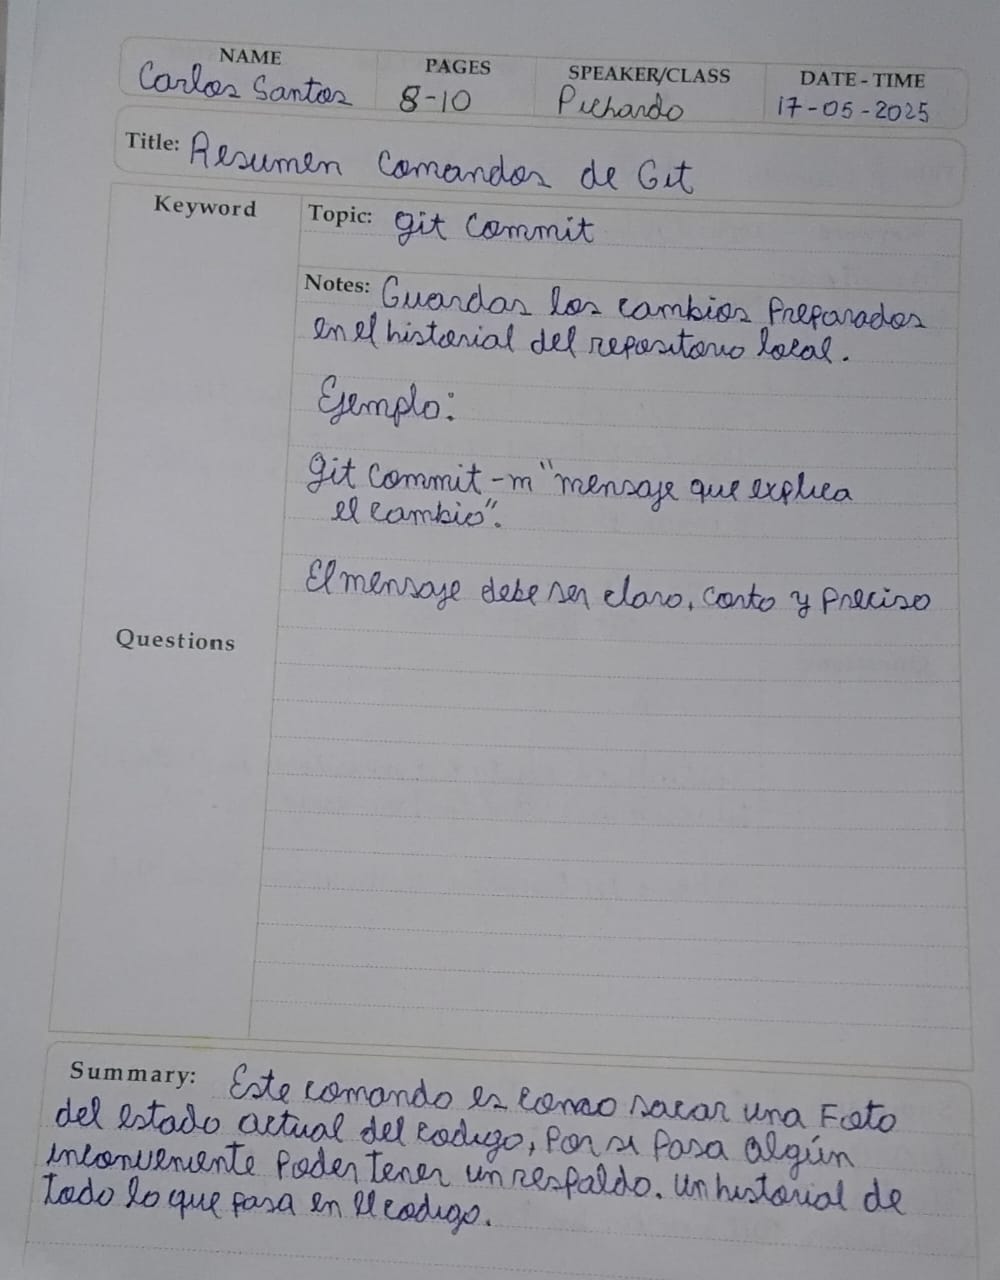 NAME PAGES SPEAKER/CLASS DATE - TIME
Carlos Santos 8-10 Pichardo 17-05-2025
Title: Resumen Comandos de Git
Keyword
Topic: git commit
Notes: Guardas los cambios Preparados
en el historial del repositorio local.
Ejemplo:
git commit -m "mensaje que explica
el cambio".
El mensaje debe ser claro, corto y preciso
Questions
Summary: Este comando es como sacar una Foto
del estado actual del codigo, por si pasa algún
inconveniente poder tener un respaldo. Un historial de
todo lo que pasa en el codigo.